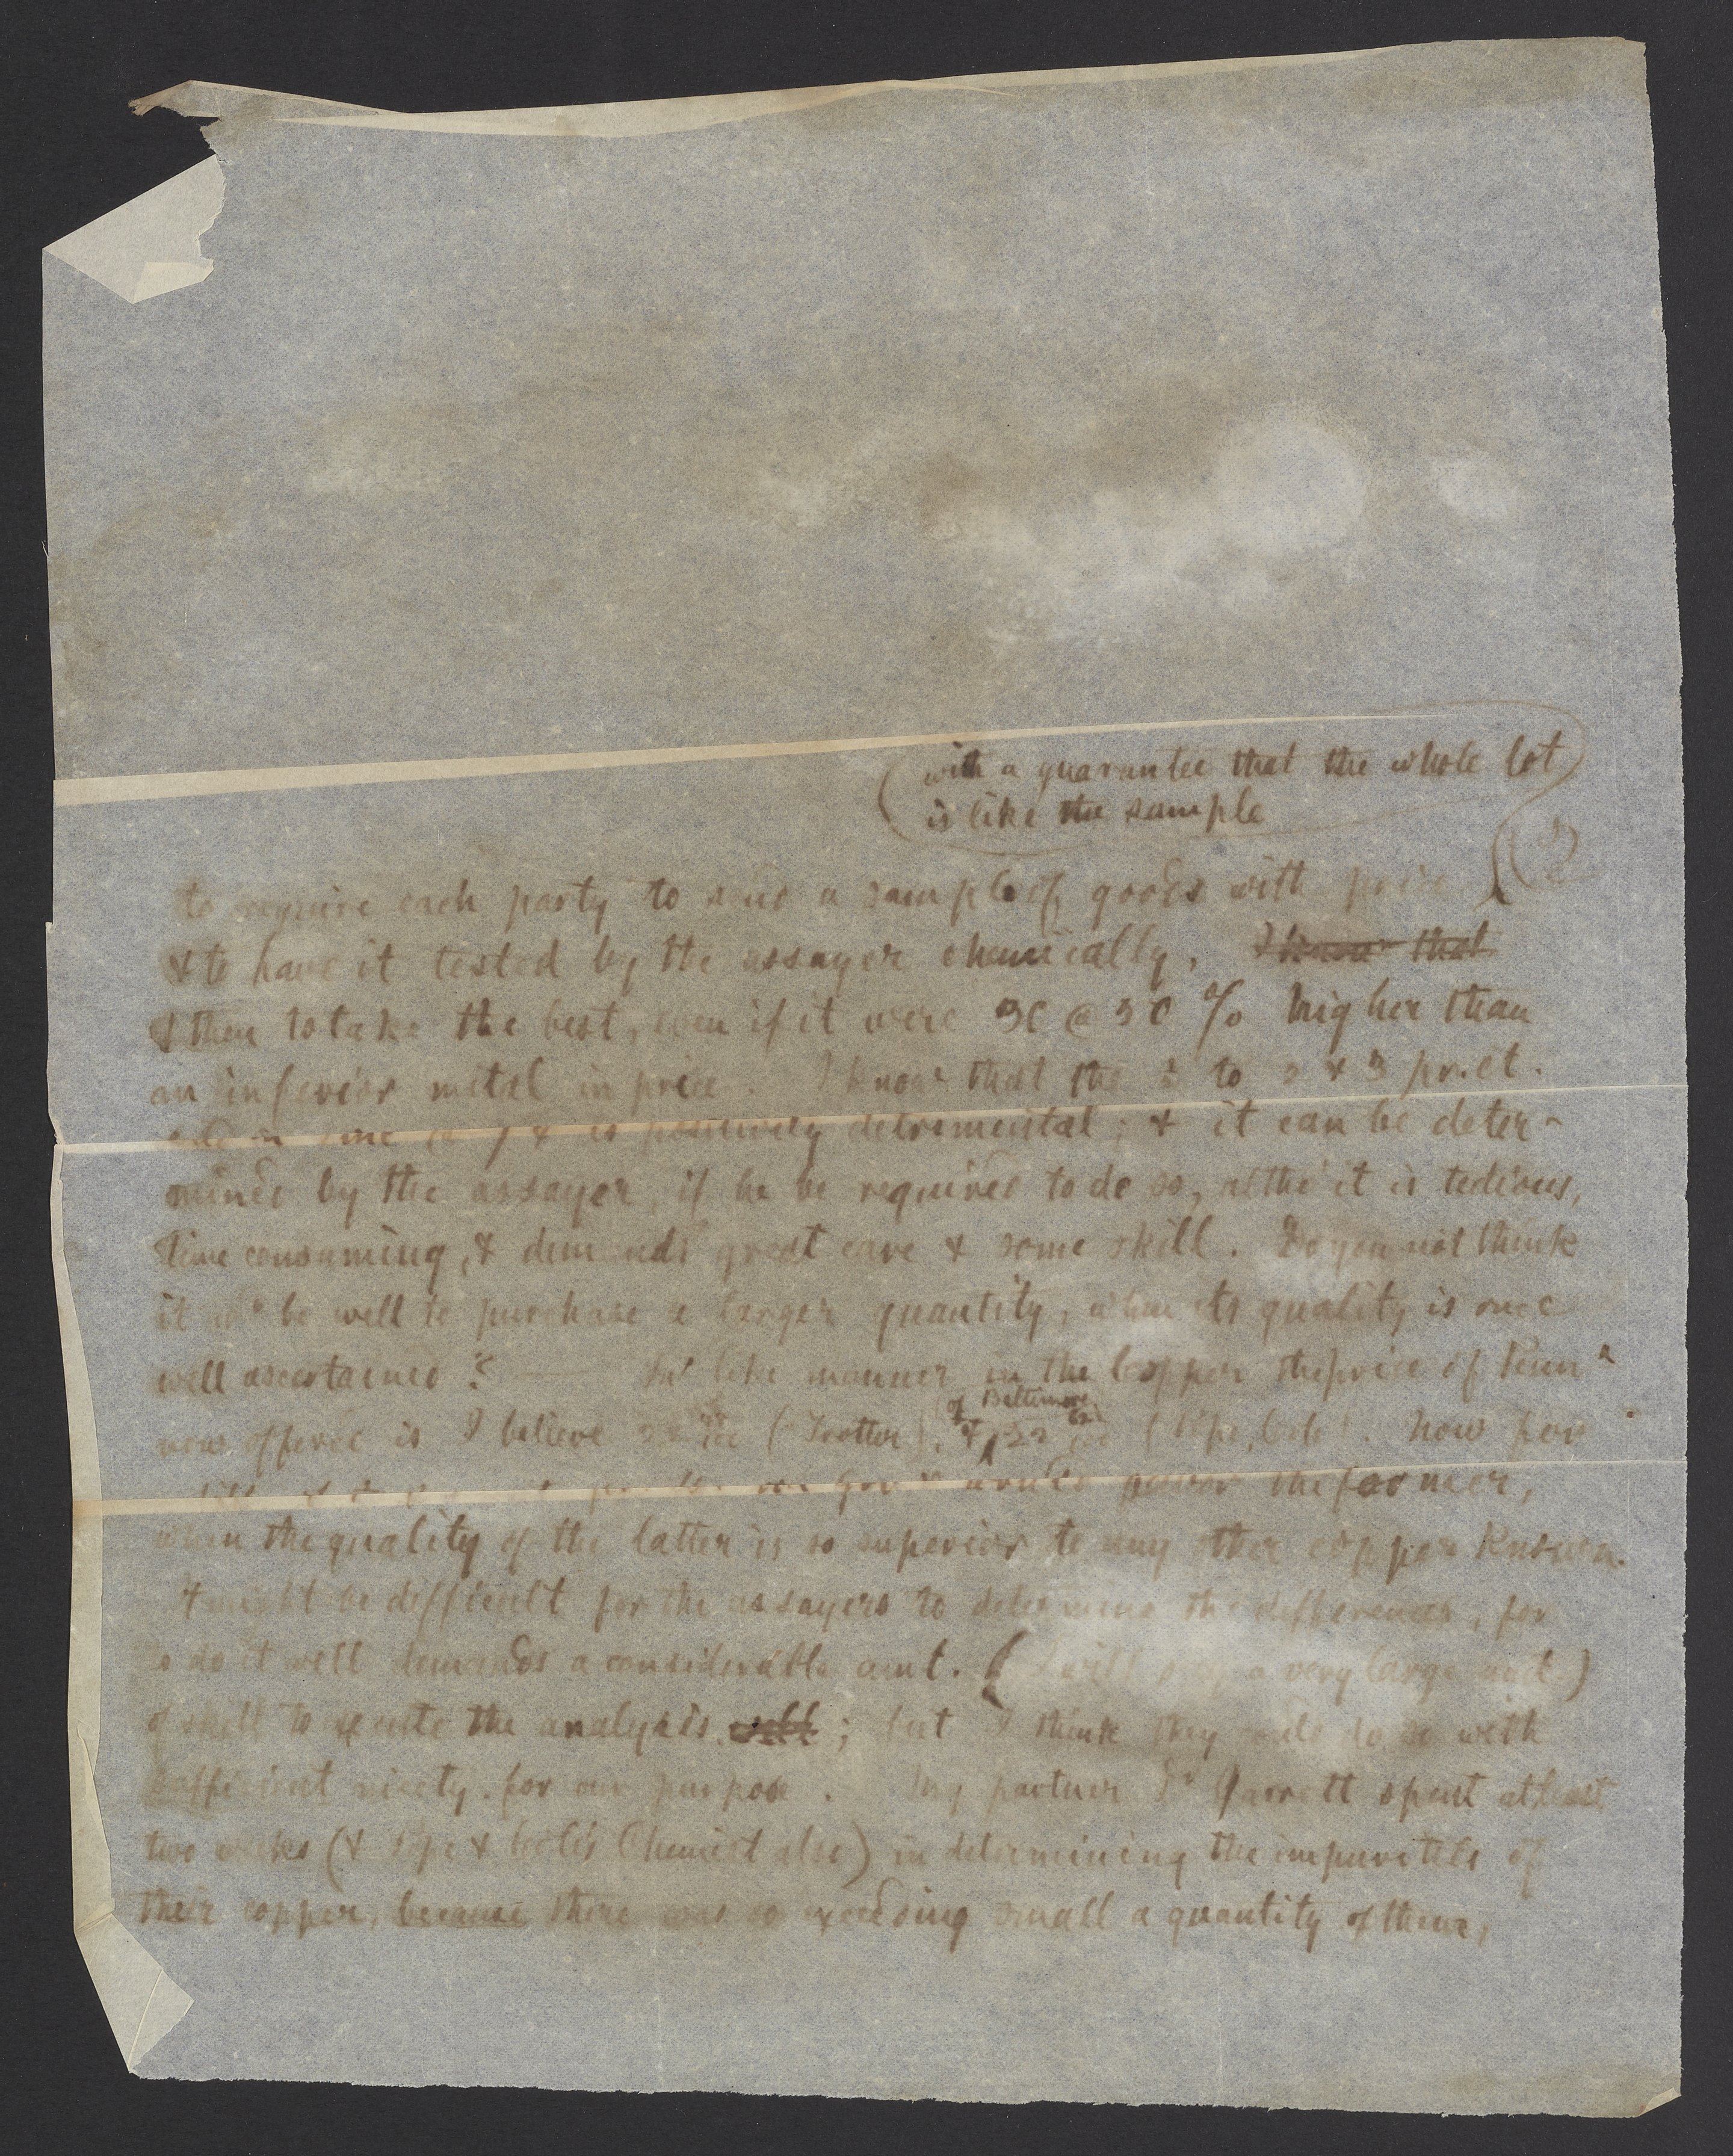 with a guarantee that the whole lot
is like the sample
to require each party to send a sample of goods with price
& to have it tested by the assayer chemically. I know that
& then to take the best, even if it were 30 @ 50 % higher than
an inferior metal in price. I know that the to 2 & 3 pr. ct.
is positively detrimental; & it can be deter-
mined by the assayer, if he be required to do so, altho' it is tedious,
time consuming, & demands great care & some skill. Do you not think
it wd be well to purchase a larger quantity, when its quality is once
well ascertained? — In like manner in the Copper the price of
now offered is I believe (Trotter), & 22
of Baltimore
now for
the former,
when the quality of the latter is so superior to any other copper known.
It might be difficult for the assayers to determine the differences, for
to do it well demands a considerable amt. (I will say a very large amt.)
of skill to execute the analysis well; but I think they could do so with
sufficient nicety for our purpose. My partner Dr Garrett spent at least
two weeks (& Pope & Cole's Chemist also) in determining the impurities of
their copper, because there was so exceeding small a quantity of them,